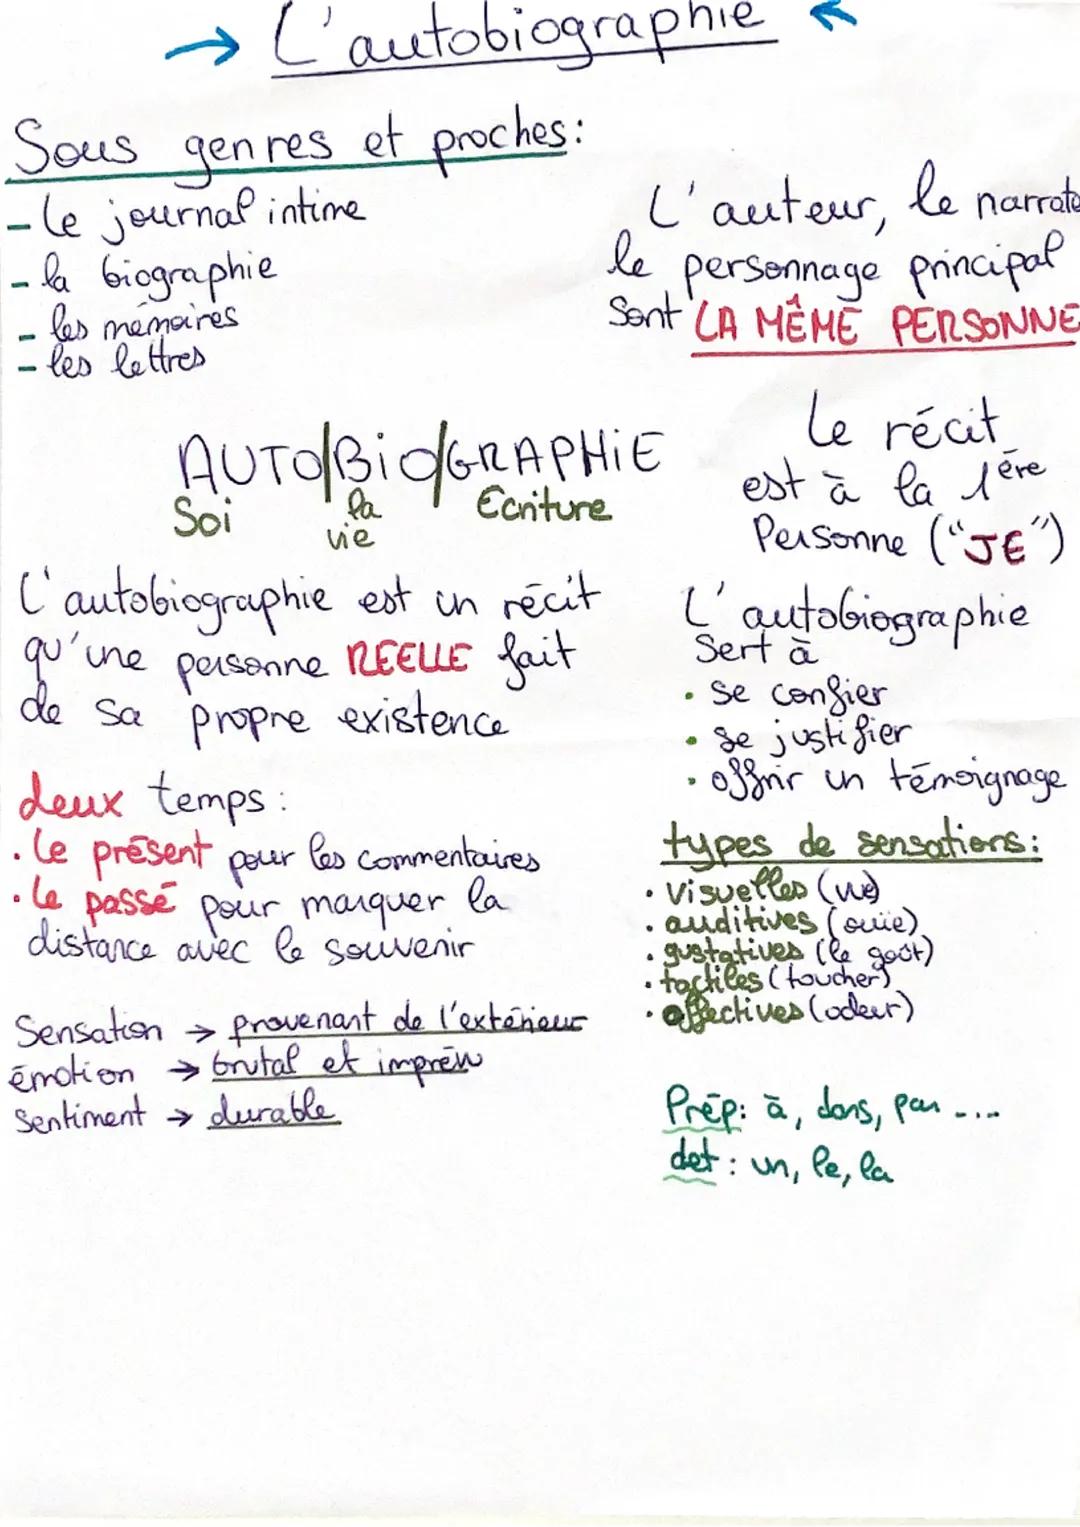 → L'autobiographie ←
Sous genres et proches:
- le journal intime
- la biographie
- les mémoires
- les lettres
L'auteur, le narrate
le personnage principal
sont LA MÊME PERSONNE
AUTO/BiO/GRAPHiE
Soi la vie Ecriture
Le récit
est à la 1ère
Personne ("JE")
L'autobiographie est un récit
qu'une personne REELLE fait
de sa propre existence
L'autobiographie
Sert à
• se confier
• se justifier
• offrir un témoignage
deux temps :
• le présent pour les commentaires
• le passé pour marquer la
distance avec le souvenir
types de sensations :
• visuelles (vue)
• auditives (ouïe)
• gustatives (le goût)
• tactiles (toucher)
• affectives (odeur)
Sensation → provenant de l'extérieur
émotion → brutal et imprévu
Sentiment → durable
Prép: à, dans, par ....
det : un, le, la